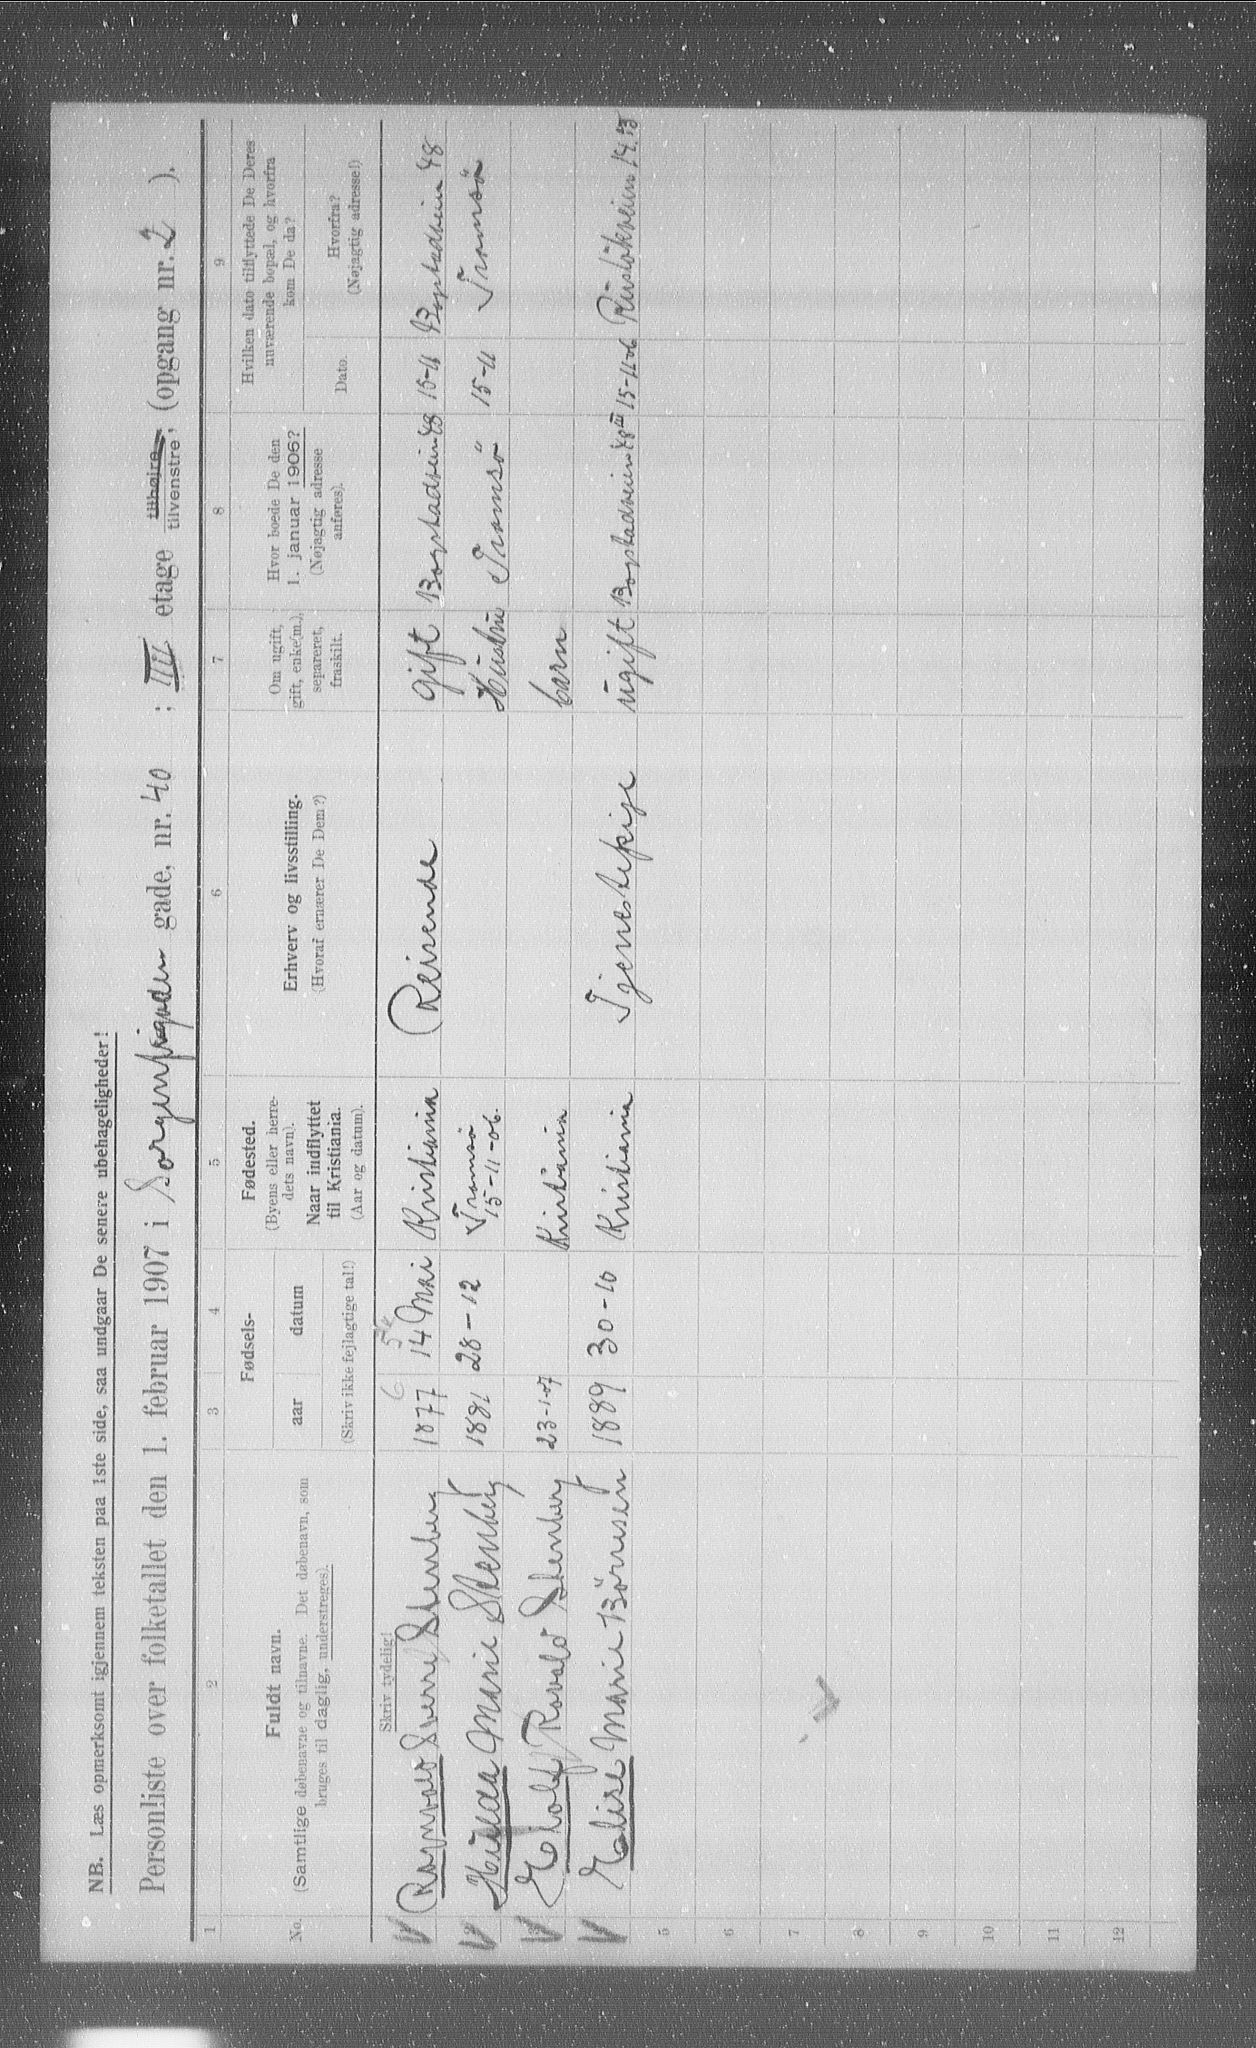 NB. Læs opmerksomt igjennem teksten paa 1ste side, saa undgaar De senere ubehageligheder!
Personliste over folketallet den 1. februar 1907 i Sorgenfrigaden gade, nr. 40 ; III etage tilhøire tilvenstre, (opgang nr. 2 ).
1 2 3 4 5 6 7 8 9
No.
Fuldt navn.
(Samtlige døbenavne og tilnavne. Det døbenavn, som
bruges til daglig, understreges).
Fødsels-
aar datum
(Skriv ikke fejlagtige tal!)
Fødested.
(Byens eller herre-
dets navn).
Naar indflyttet
til Kristiania.
(Aar og datum).
Erhverv og livsstilling.
(Hvoraf ernærer De Dem?)
Om ugift,
gift, enke(m.),
separeret,
fraskilt.
Hvor boede De den
1. januar 1906?
(Nøjagtig adresse
anføres).
Hvilken dato tilflyttede De Deres
nuværende bopæl, og hvorfra
kom De da?
Dato.
Hvorfra?
(Nøjagtig adresse!)
Skriv tydelig!
Ragnvald Sverre Stenberg 1877 14 Mai Kristiania Reisende gift Bogstadveien 48 15-11 Bogstadveien 48
Hulda Marie Stenberg 1881 28-12 Tromsö 15-11-06. Hustru Tromsö 15-11 Tromsö
3 Stenberg 23-1-07 Kristiania barn
Elise Marie Börresen 1889 30-10 Kristiania Tjenestepige ugift Bogstadveien 48 III 15-11-06 Ruslökveien 14.
5
6
7
8
9
10
11
12